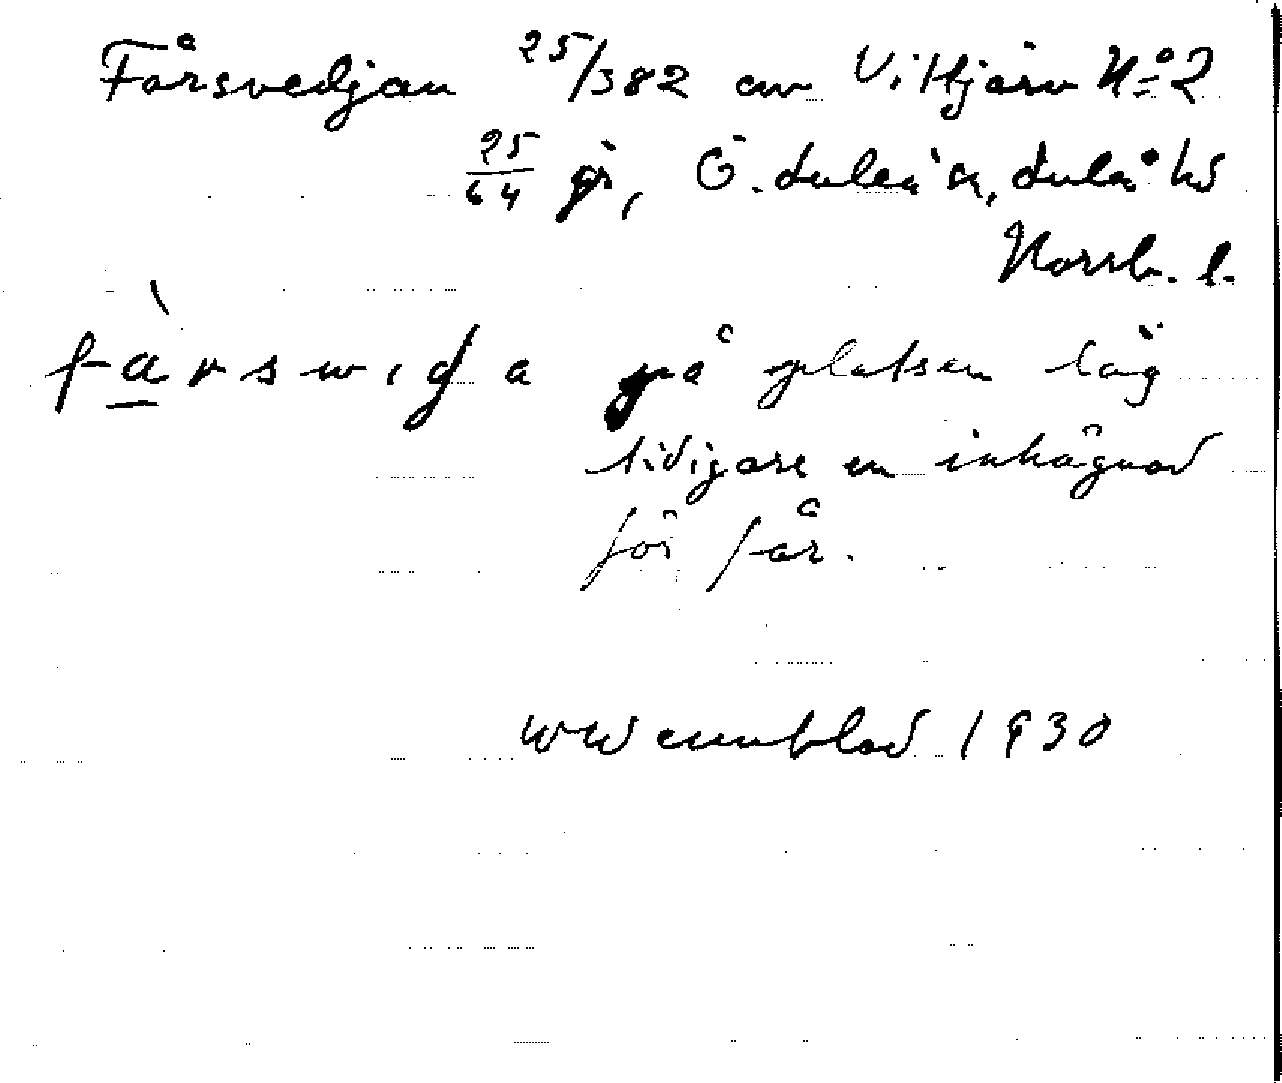 Fårsvedjan 25/382 av Vittjärv No 2
25/64 gr, Ö. Luleå sn, Luleå hs
Norrb. l.
fàrswiđa på platsen låg
tidigare en inhägnad
för får.
W Wennblad 1930